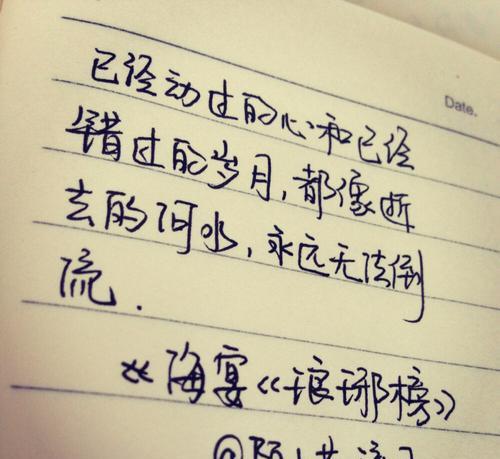 Date.
已经动过的心和已经
错过的岁月,都像逝
去的河水,永远无法倒
流.
海宴《琅琊榜》